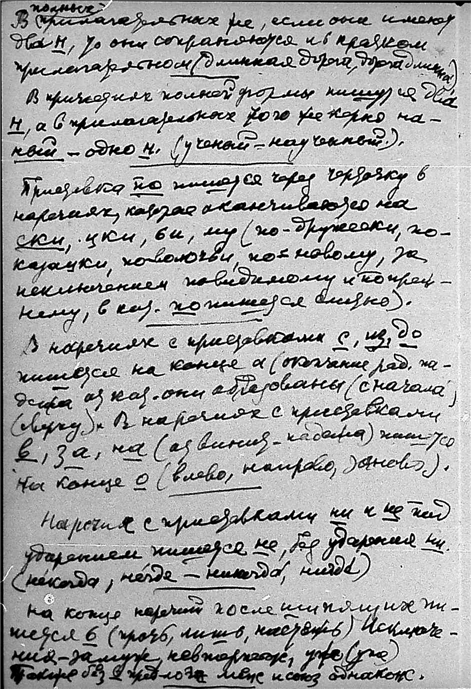 полных
В прилагательных же, если они имеют
два н, то они сохраняются и в кратком
прилагательном (длинная дорога, дорога длинна)
В причастиях полной формы пишутся два
н, а в прилагательных того же корня на-
ный – одно н. (ученый – наученный).
Приставка по пишется через черточку в
наречиях, которые оканчиваются на
ски, цки, ьи, му (по-дружески, по-
казацки, по-волчьи, по-новому, за
исключением повидимому и попреж-
нему, в кот. по пишется слитно).
В наречиях с приставками с, из, до
пишется на конце а (окончание род. па-
дежа от кот. они образованы (сначала)
В наречиях с приставками
в, за, на (от винит. падежа) пишется
на конце о (влево, направо, заново).
Наречия с приставками ни и не под
ударением пишется не, без ударения ни.
(некогда, негде – никогда, нигде)
На конце наречий после шипящих пи-
шется ь (прочь, лишь, настежь) Исключе-
ния – замуж, невтерпеж, уж (уже)
Также без ь предлог меж и союз однакож.